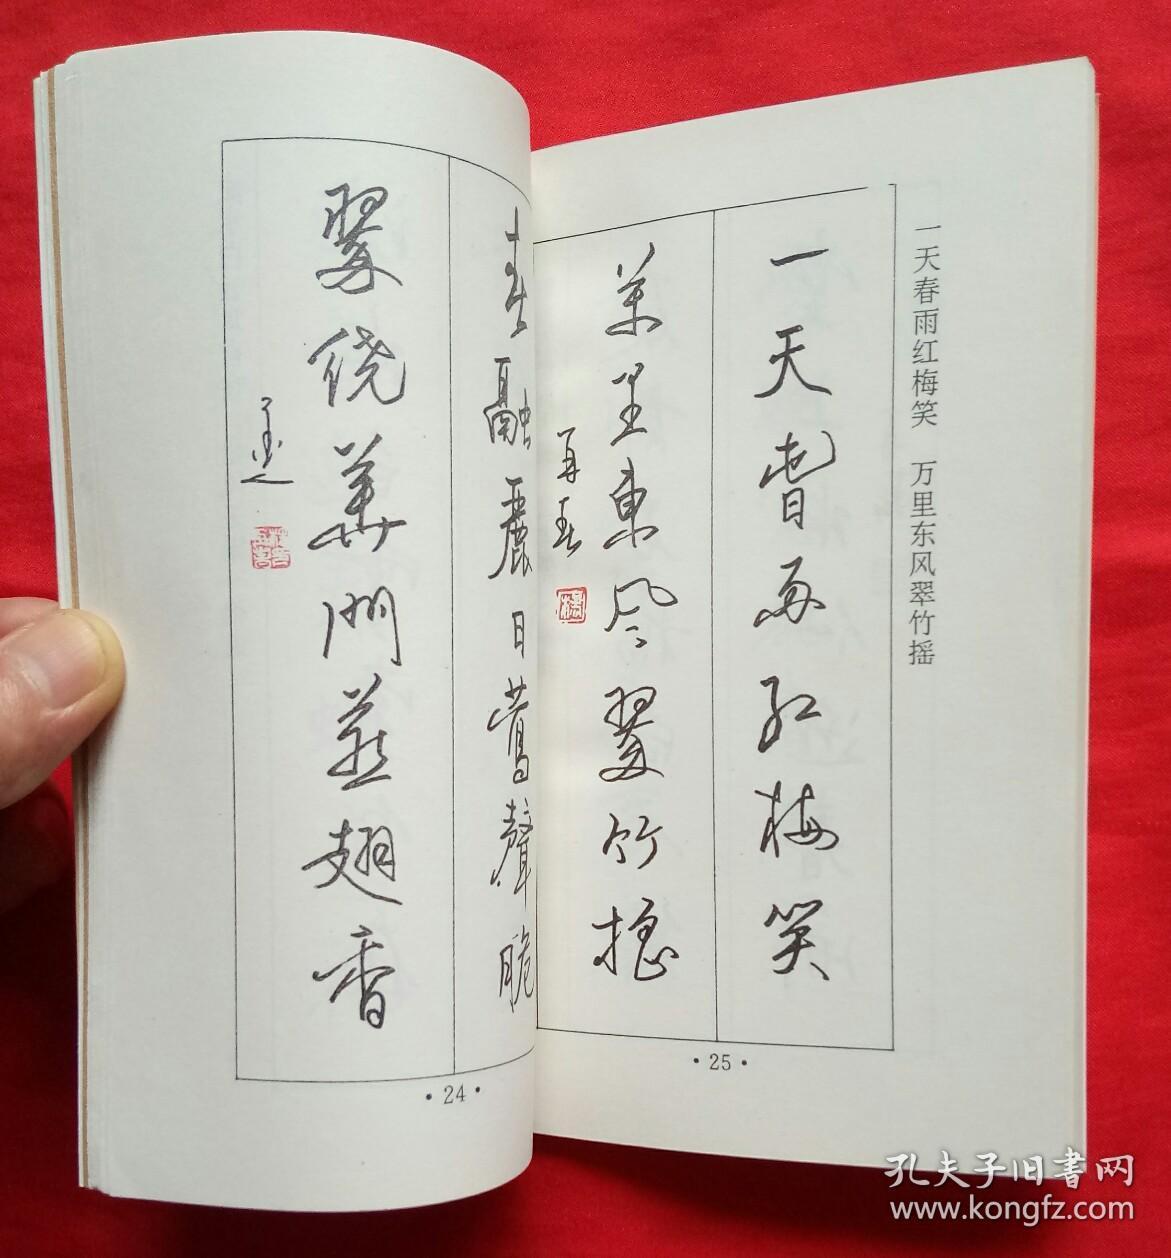 春融麗日鶯聲脆
翠绕華門燕翅香
·24·
一天春雨红梅笑　万里东风翠竹摇
一天春雨红梅笑
萬里東风翠竹摇
·25·
孔夫子旧書网
www.kongfz.com